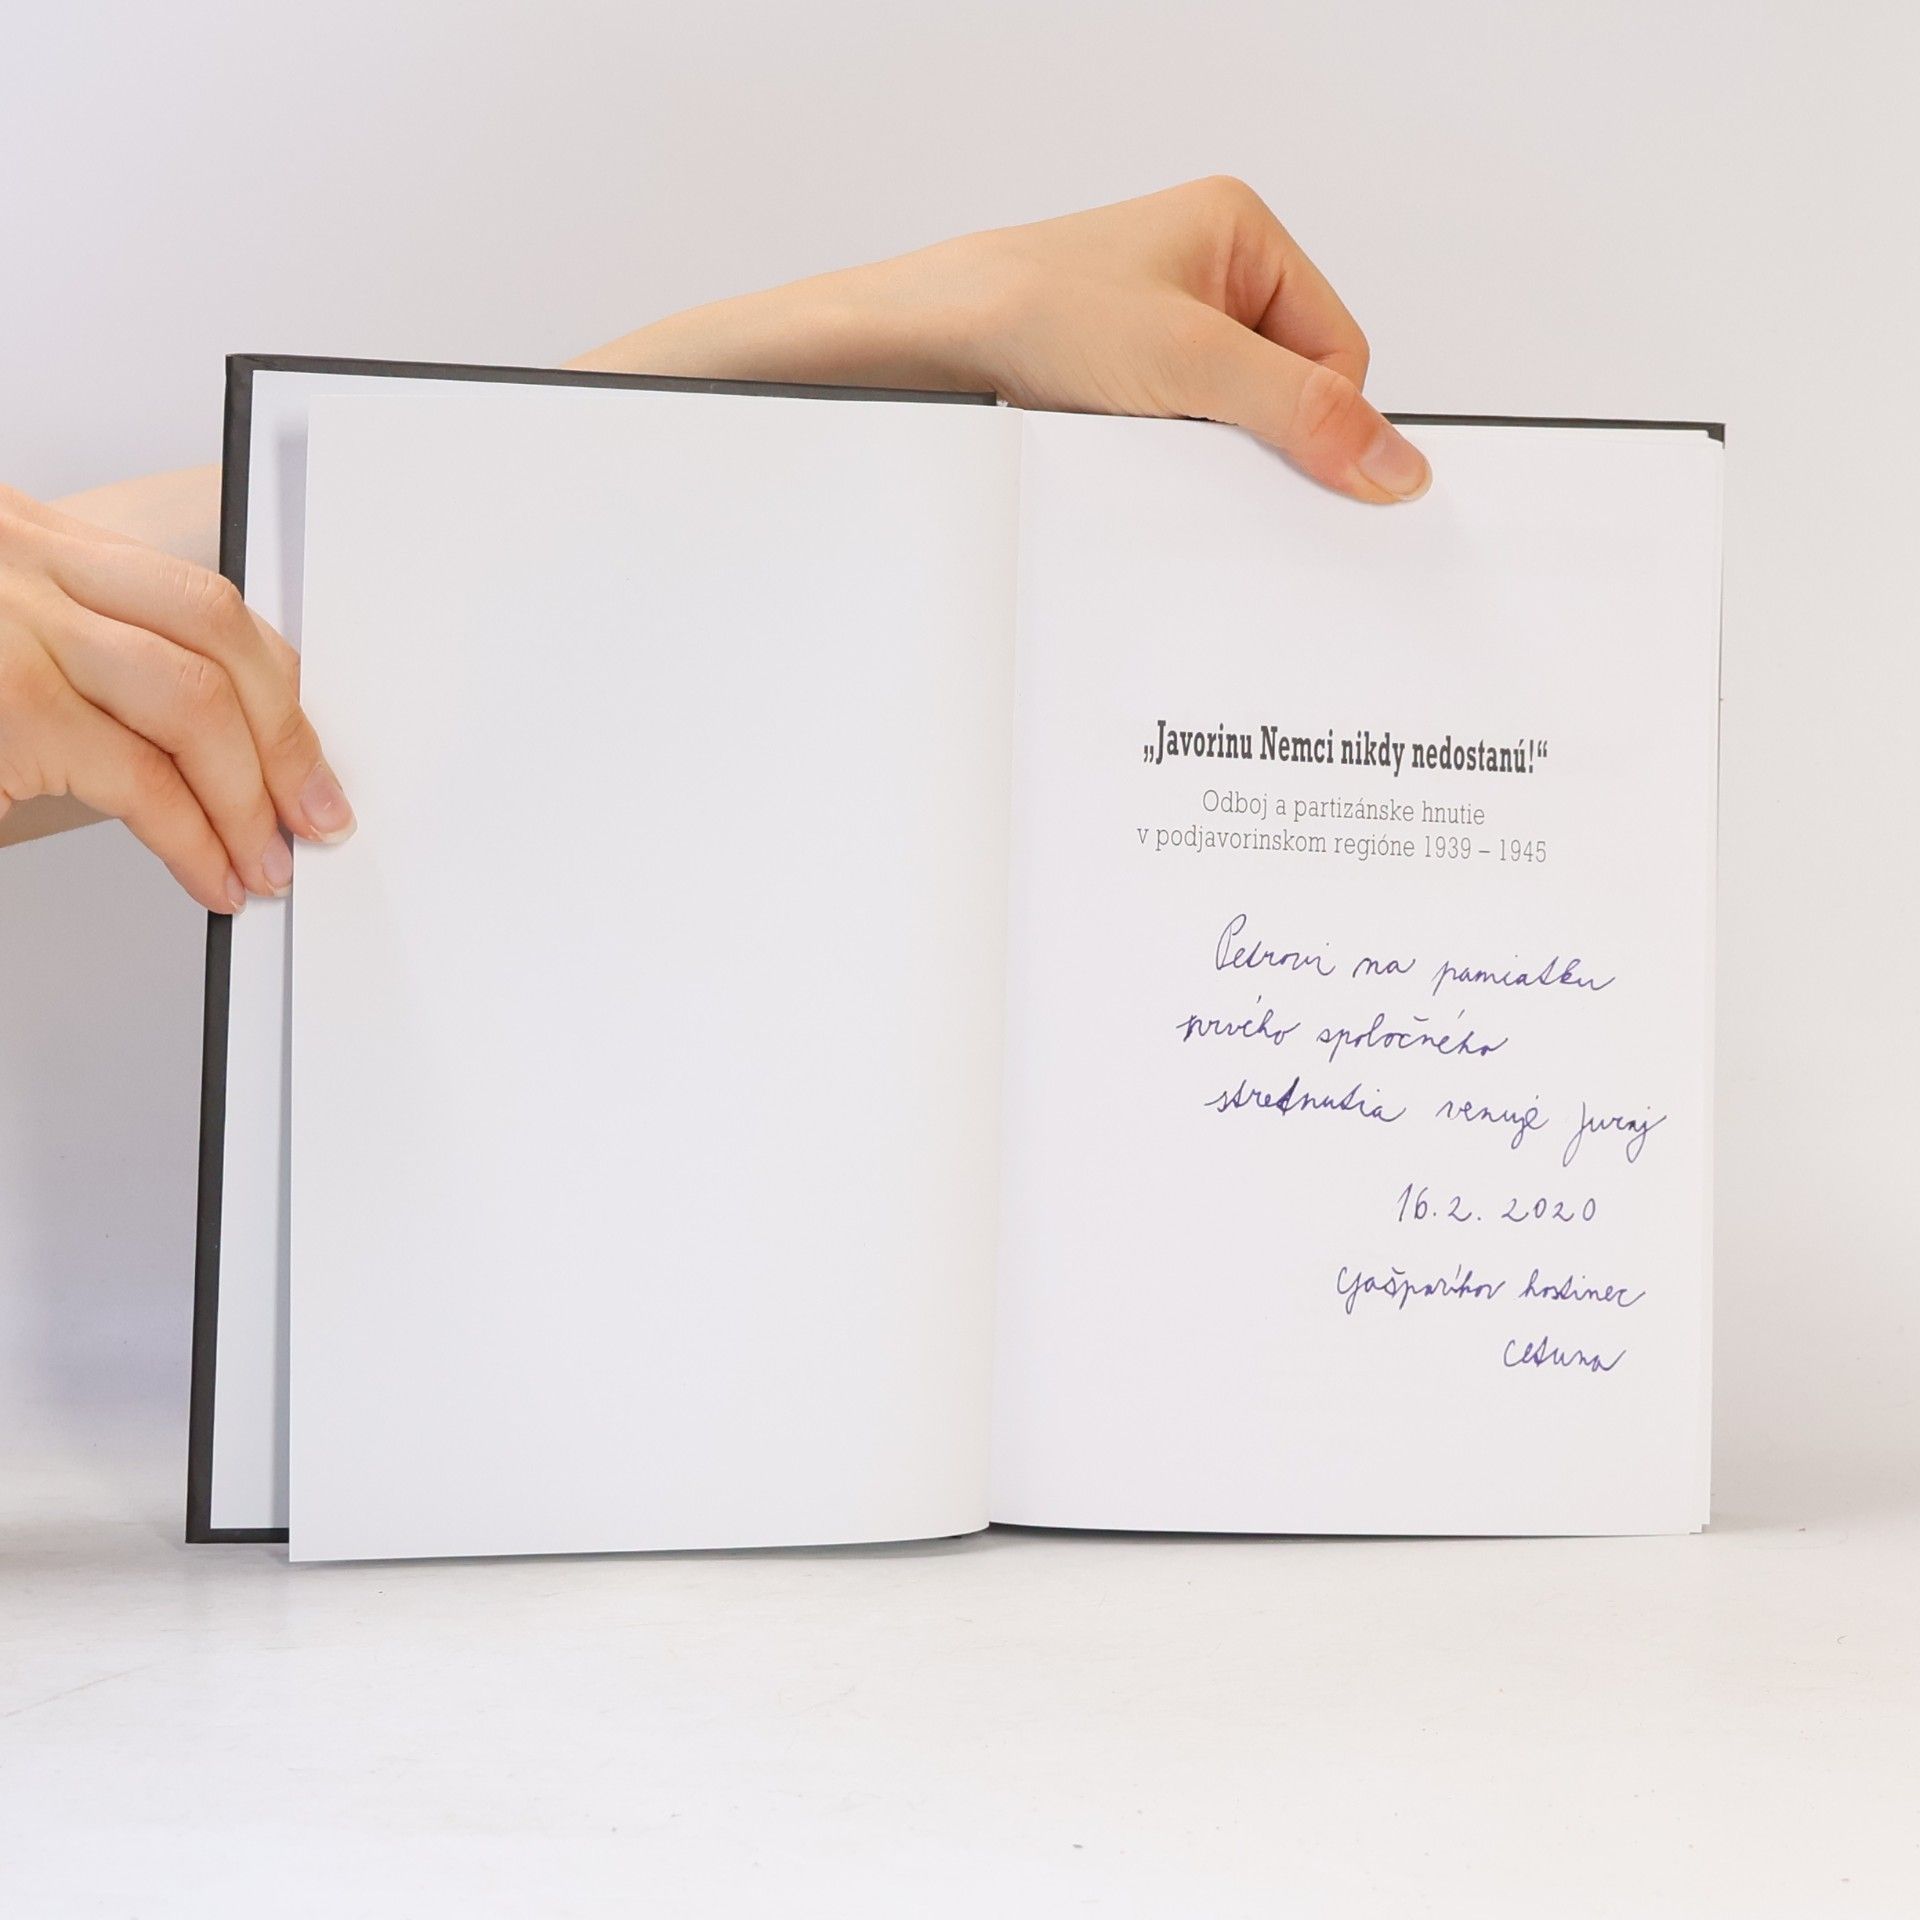 „Javorinu Nemci nikdy nedostanú!“
Odboj a partizánske hnutie
v podjavorinskom regióne 1939 – 1945
Petrovi na pamiatku
prvého spoločného
stretnutia venuje Juraj
16. 2. 2020
Gašparíkov hostinec
Cetuna